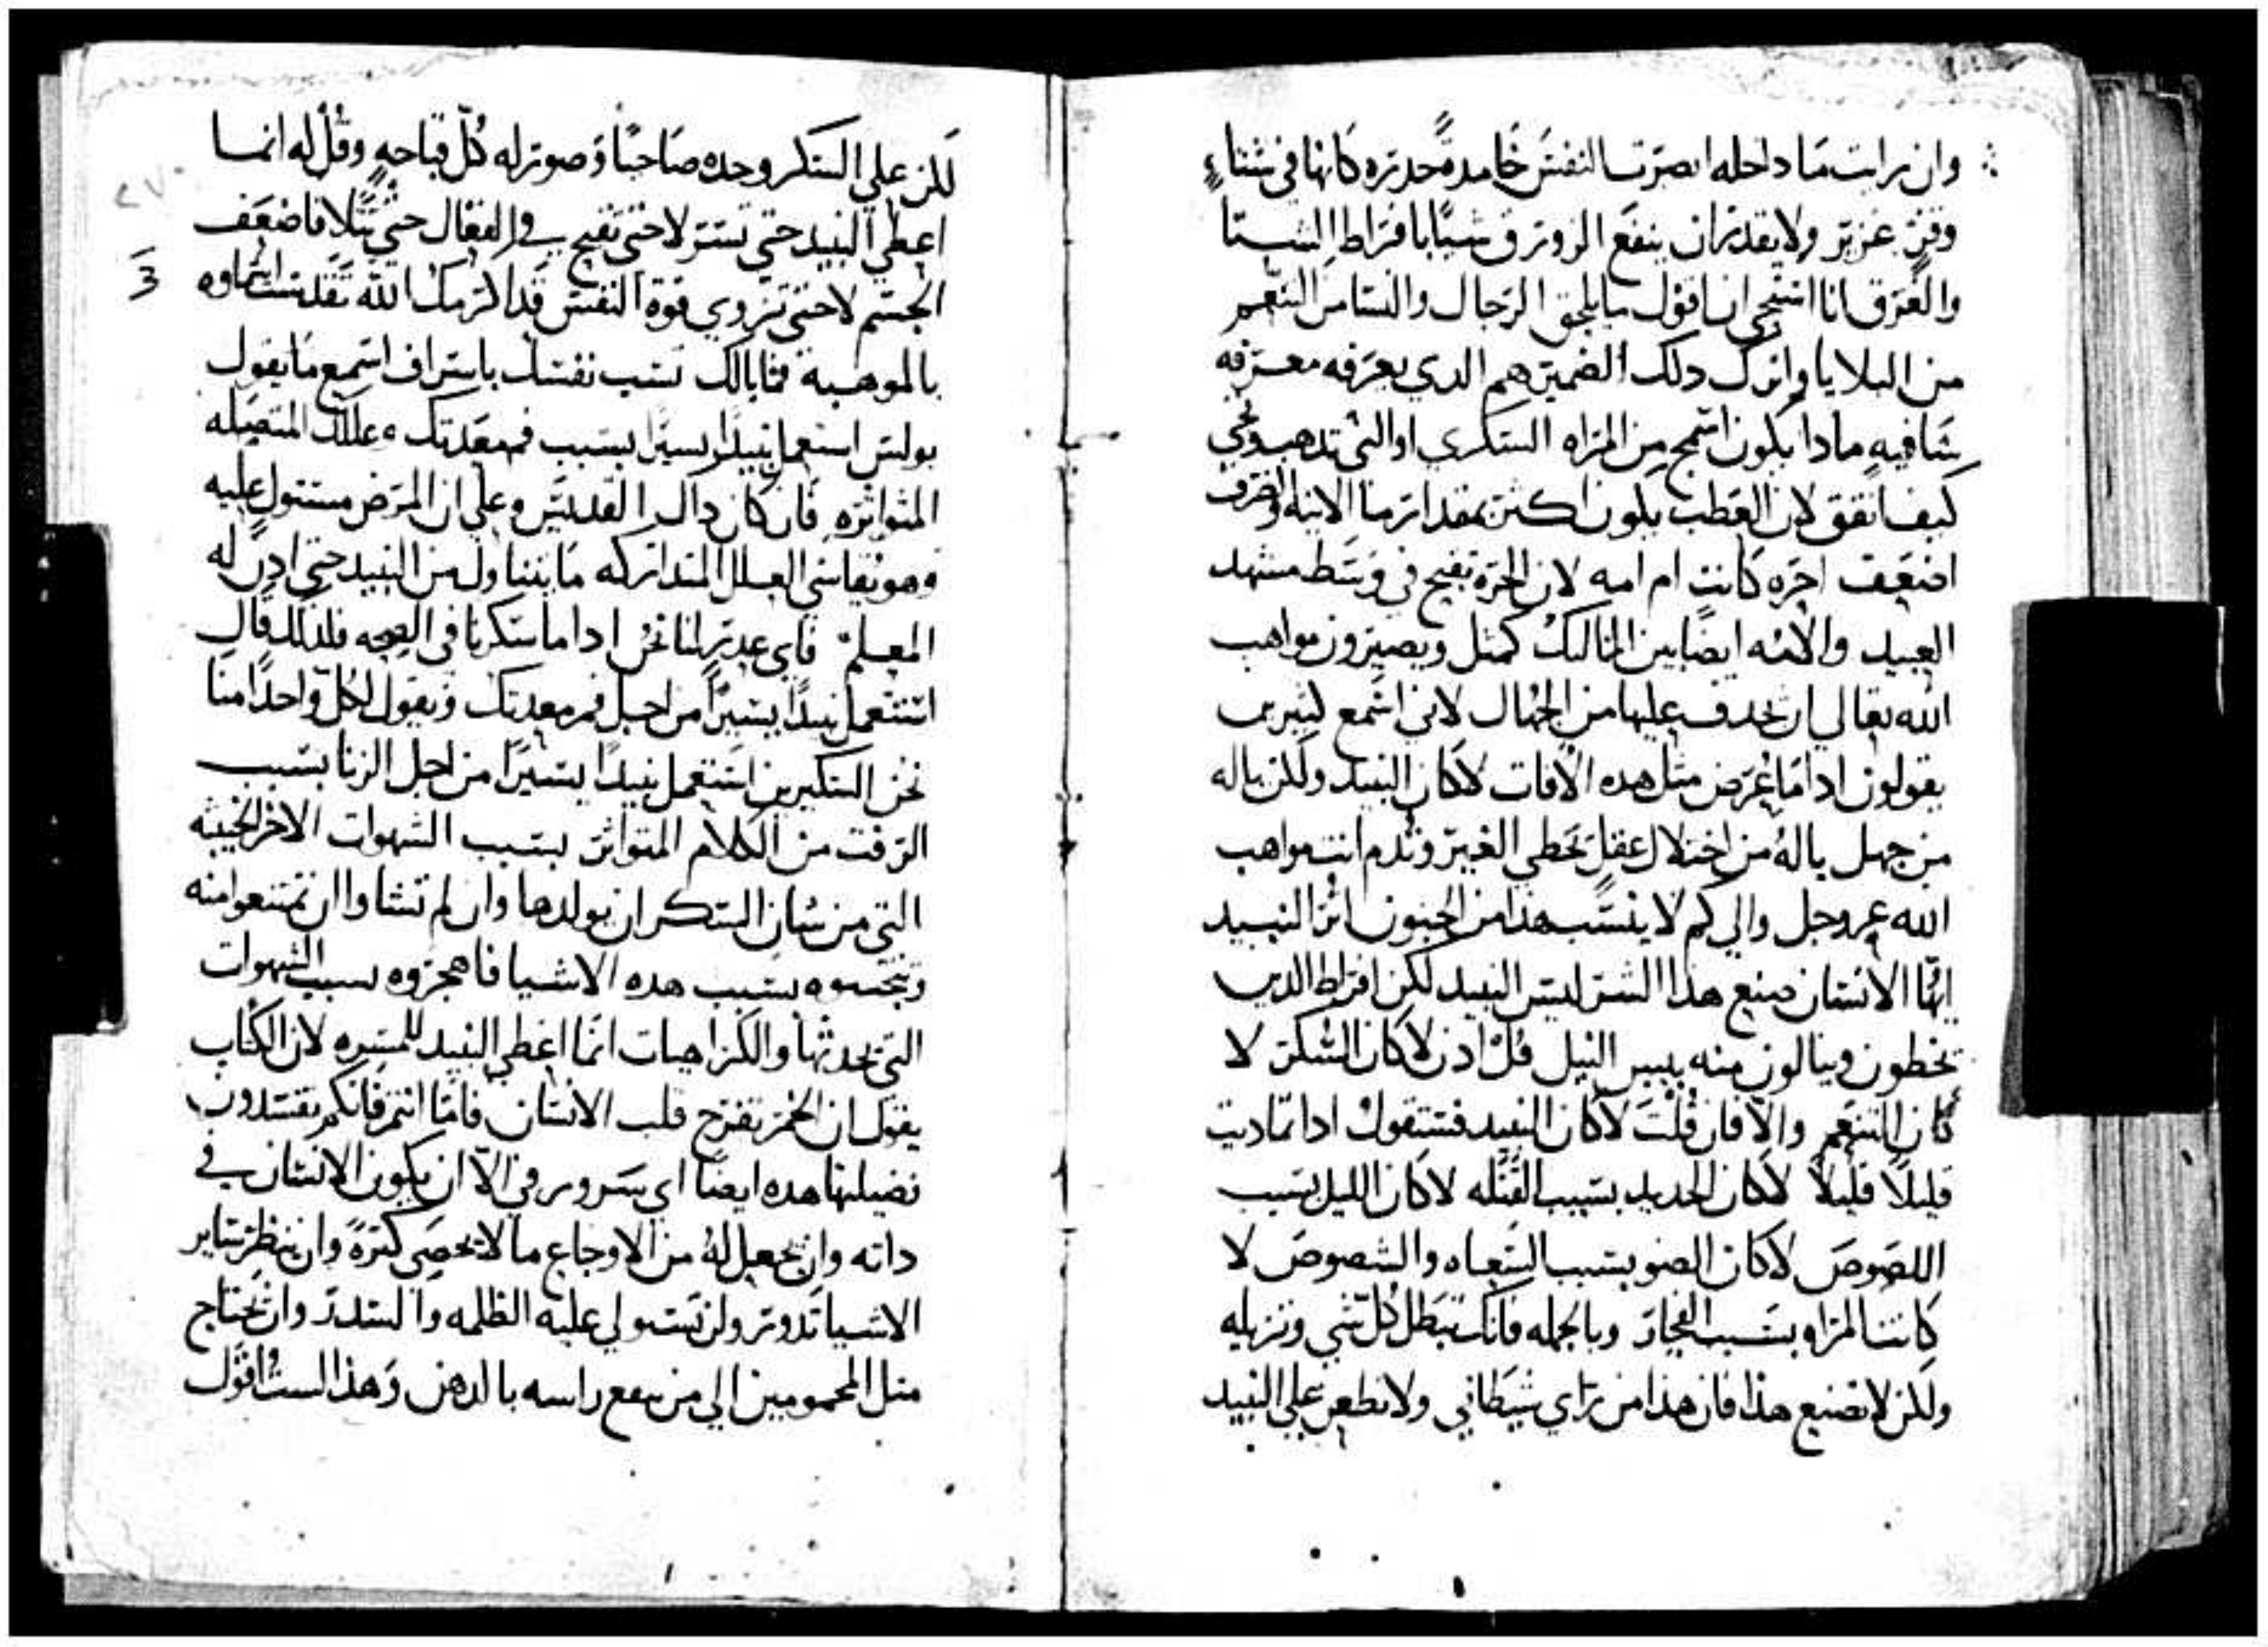 وان رايت ما داخله ابصرت النفس خامدة محدره كانها في شتاء
وقر عزيز ولا يقدر ان ينفع الزورق شيًا بافراط الشتا
والغرق انا استحي ان اقول ما يلحق الرجال والنسا من التنعم
من البلايا واترك دلك لضميرهم الدي يعرفه معرفه
شافيه مادا يكون اسمج من المراه السكري او التي تدهب وتجي
كيفما تفق لان العطب يكون اكثر بمقدار ما الانيه
اضعف احره كانت ام امه لان الحره تفتح في وسط مشهد
العبيد والامه ايضًا بين المماليك كمثل ويصيرون مواهب
الله تعالي ان يجدف عليها من الجهال لاني اسمع كثيرين
يقولون ادا ما عرض مثل هده الافات لا كان النبيد ولكن ياله
من جهل ياله من اختلال عقل يخطي الغير وتدم انت مواهب
الله عز وجل والي كم لا ينسب هذا من الجنون اثر النبيد
ايها الانسان صنع هذا الشر ليس النبيد لكن افراط الدين
يخطون وينالون منه بيس النيل قل ادن لا كان السكر لا
كان التنعم والا فان قلت لا كان النبيد فستقول ادا تماديت
قليلاً قليلاً لا كان الحديد بسبب القتله لا كان الليل بسبب
اللصوص لا كان الضو بسبب السعاه والشصوص لا
كانت المراه بسبب الفجار وبالجمله فانك تبطل كل شي وتزيله
ولكن لا تصنع هذا فان هذا من راي شيطاني ولا تطعن علي النبيد
لكن علي السكر وحده صاحبًا وصور له كل قباحه وقل له انما
اعطي النبيد حتي تسر لا حتي تقبح في الفعال حتي تتلافا ضعف
الجسم لا حتي تزوي قوة النفس قد اكرمك الله
بالموهبة فما بالك تسب نفسك باسراف اسمع ما يقول
بولس استعمل نبيدًا يسيرًا بسبب فم معدتك وعللك المتصله
المتواتره فان كان داك القديس وعلي ان المرض مستول عليه
وهو يقاسي العلل المتداركه ما يتناول من النبيد حتي ادن له
المعلم فاي عدر لنا نحن ادا ما سكرنا في الصحه فلدلك قال
استعمل نبيدًا يسيرًا من اجل فم معدتك ويقول لكل واحدًا منا
نحن السكيرين استعمل نبيدًا يسيرًا من اجل الزنا بسبب
الرفت من الكلام المتواتر بسبب الشهوات الاخر الخبيثه
التي من شان السكر ان يولدها وان لم تشاوا ان تمتنعوا منه
وتجتنبوه بسبب هده الاشيا فاهجروه بسبب الشهوات
التي يحدثها والكراهيات انما اعطي النبيد للمسره لان الكتاب
يقول ان الخمر تفرح قلب الانسان فاما انتم فانكم تفسدون
فضيلتها هده ايضًا اي سرور في الا ان يكون الانسان في
داته وان يجعل له من الاوجاع ما لا يحصي كثرة وان ينظر ساير
الاشيا تدور ولن تستولي عليه الظلمه والسدر وان يحتاج
مثل المحمومين الي من راسه بالدهن وهذا لست اقول